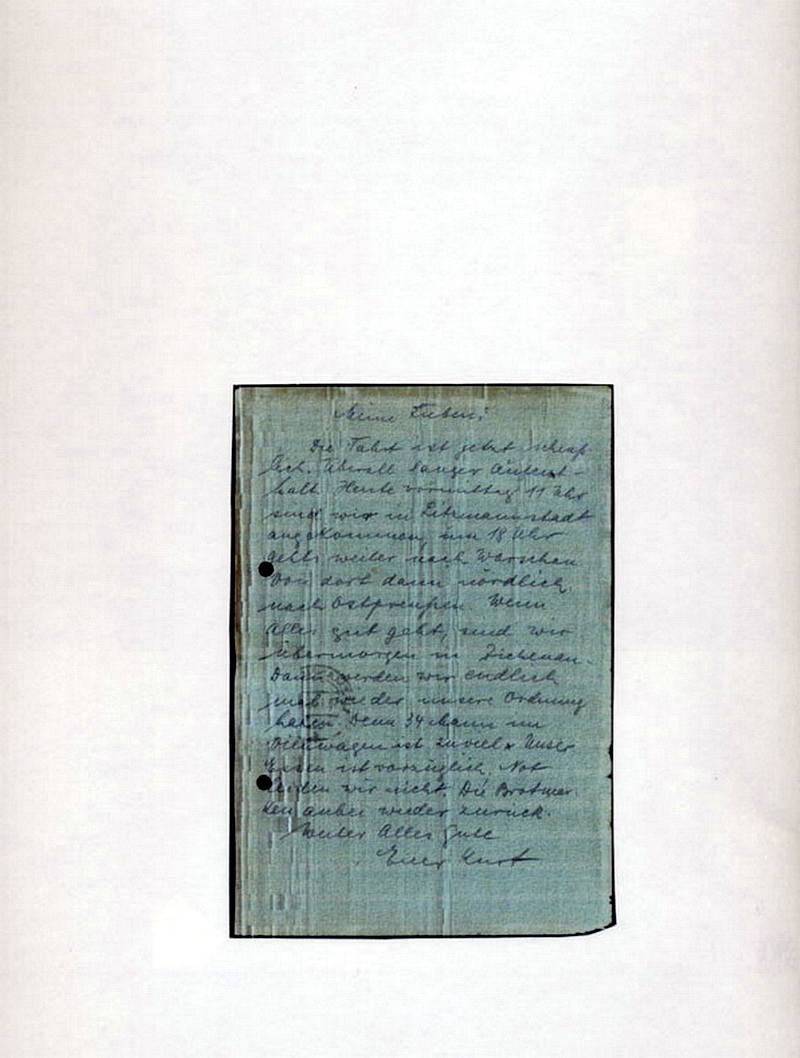 Meine Lieben!
Die Fahrt ist jetzt scheuß-
lich. Überall langer Aufent-
halt. Heute vormittag 11 Uhr
sind wir in Litzmannstadt
angekommen, um 18 Uhr
gehts weiter nach Warschau
Von dort dann nördlich
nach Ostpreußen. Wenn
Alles gut geht, sind wir
übermorgen in Zichenau.
Dann werden wir endlich
mal wieder unsere Ordnung
haben. Denn 34 Mann im
Viehwagen ist zuviel. Unser
Essen ist vorzüglich. Not
leiden wir nicht. Die Brotmar-
ken anbei wieder zurück.
Weiter Alles Gute
Euer Kurt